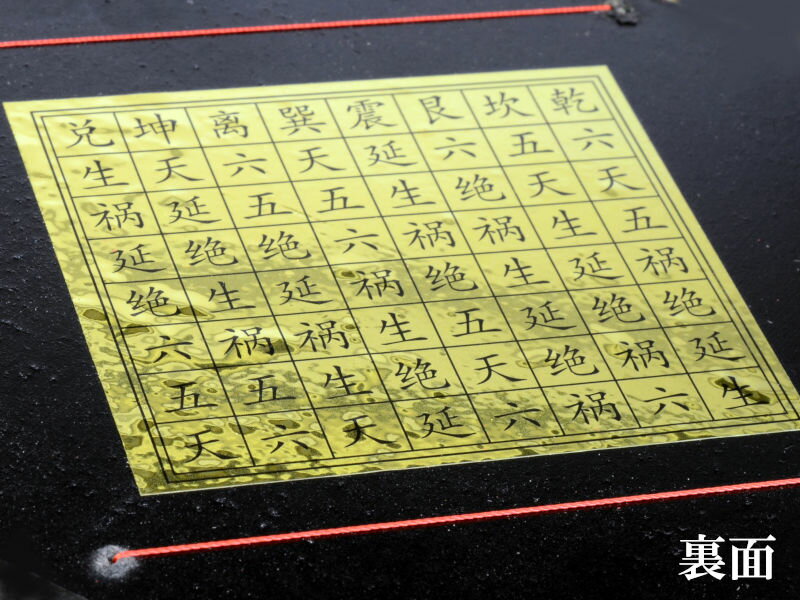 兑 坤 离 巽 震 艮 坎 乾
生 天 六 天 延 六 五 六
祸 延 五 五 生 绝 天 天
延 绝 绝 六 祸 祸 生 五
绝 生 延 祸 绝 生 延 祸
六 祸 祸 生 五 延 绝 绝
五 五 生 绝 天 绝 祸 延
天 六 天 延 六 祸 六 生
裏面